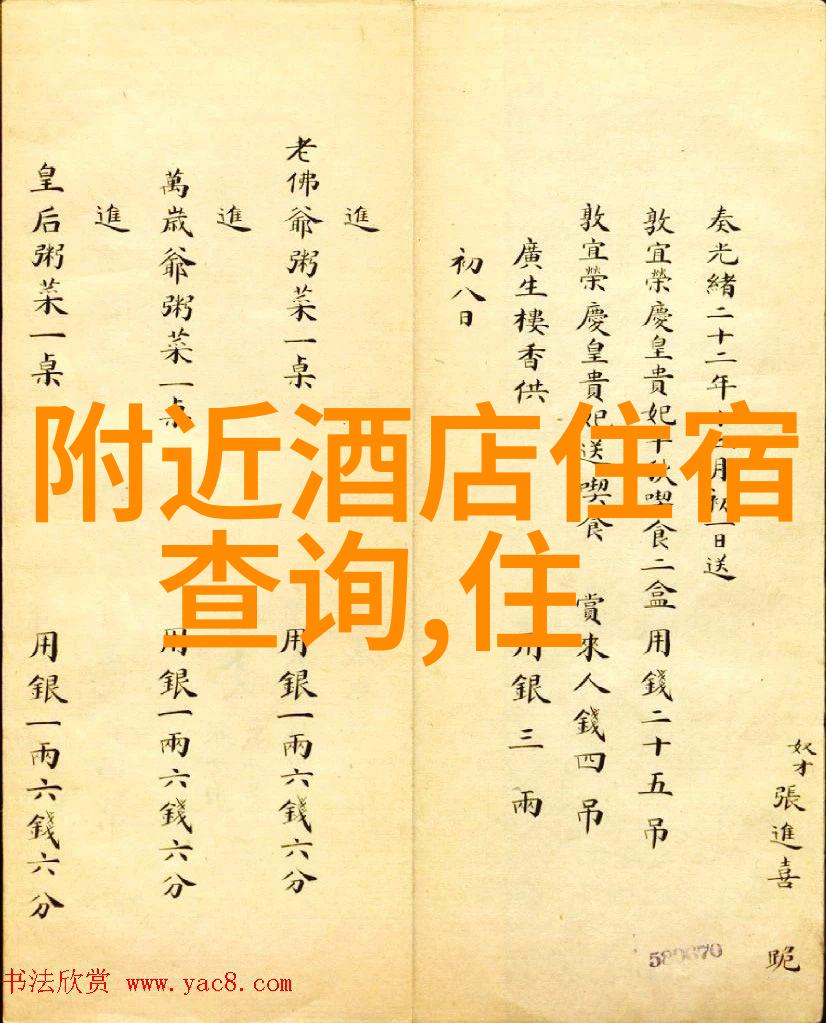 奴才張進喜 跪
奏光緒二十二年十二月初一日送
敦宜榮慶皇貴妃千秋喫食二盒用錢二十五吊
敦宜榮慶皇貴妃送喫食 賞來人錢四吊
廣生樓香供 用銀三兩
初八日
進
老佛爺粥菜一桌 用銀一兩六錢六分
進
萬歲爺粥菜一桌 用銀一兩六錢六分
進
皇后粥菜一桌 用銀一兩六錢六分
附近酒店住宿
查询,住
589670
书法欣赏 www.yac8.com